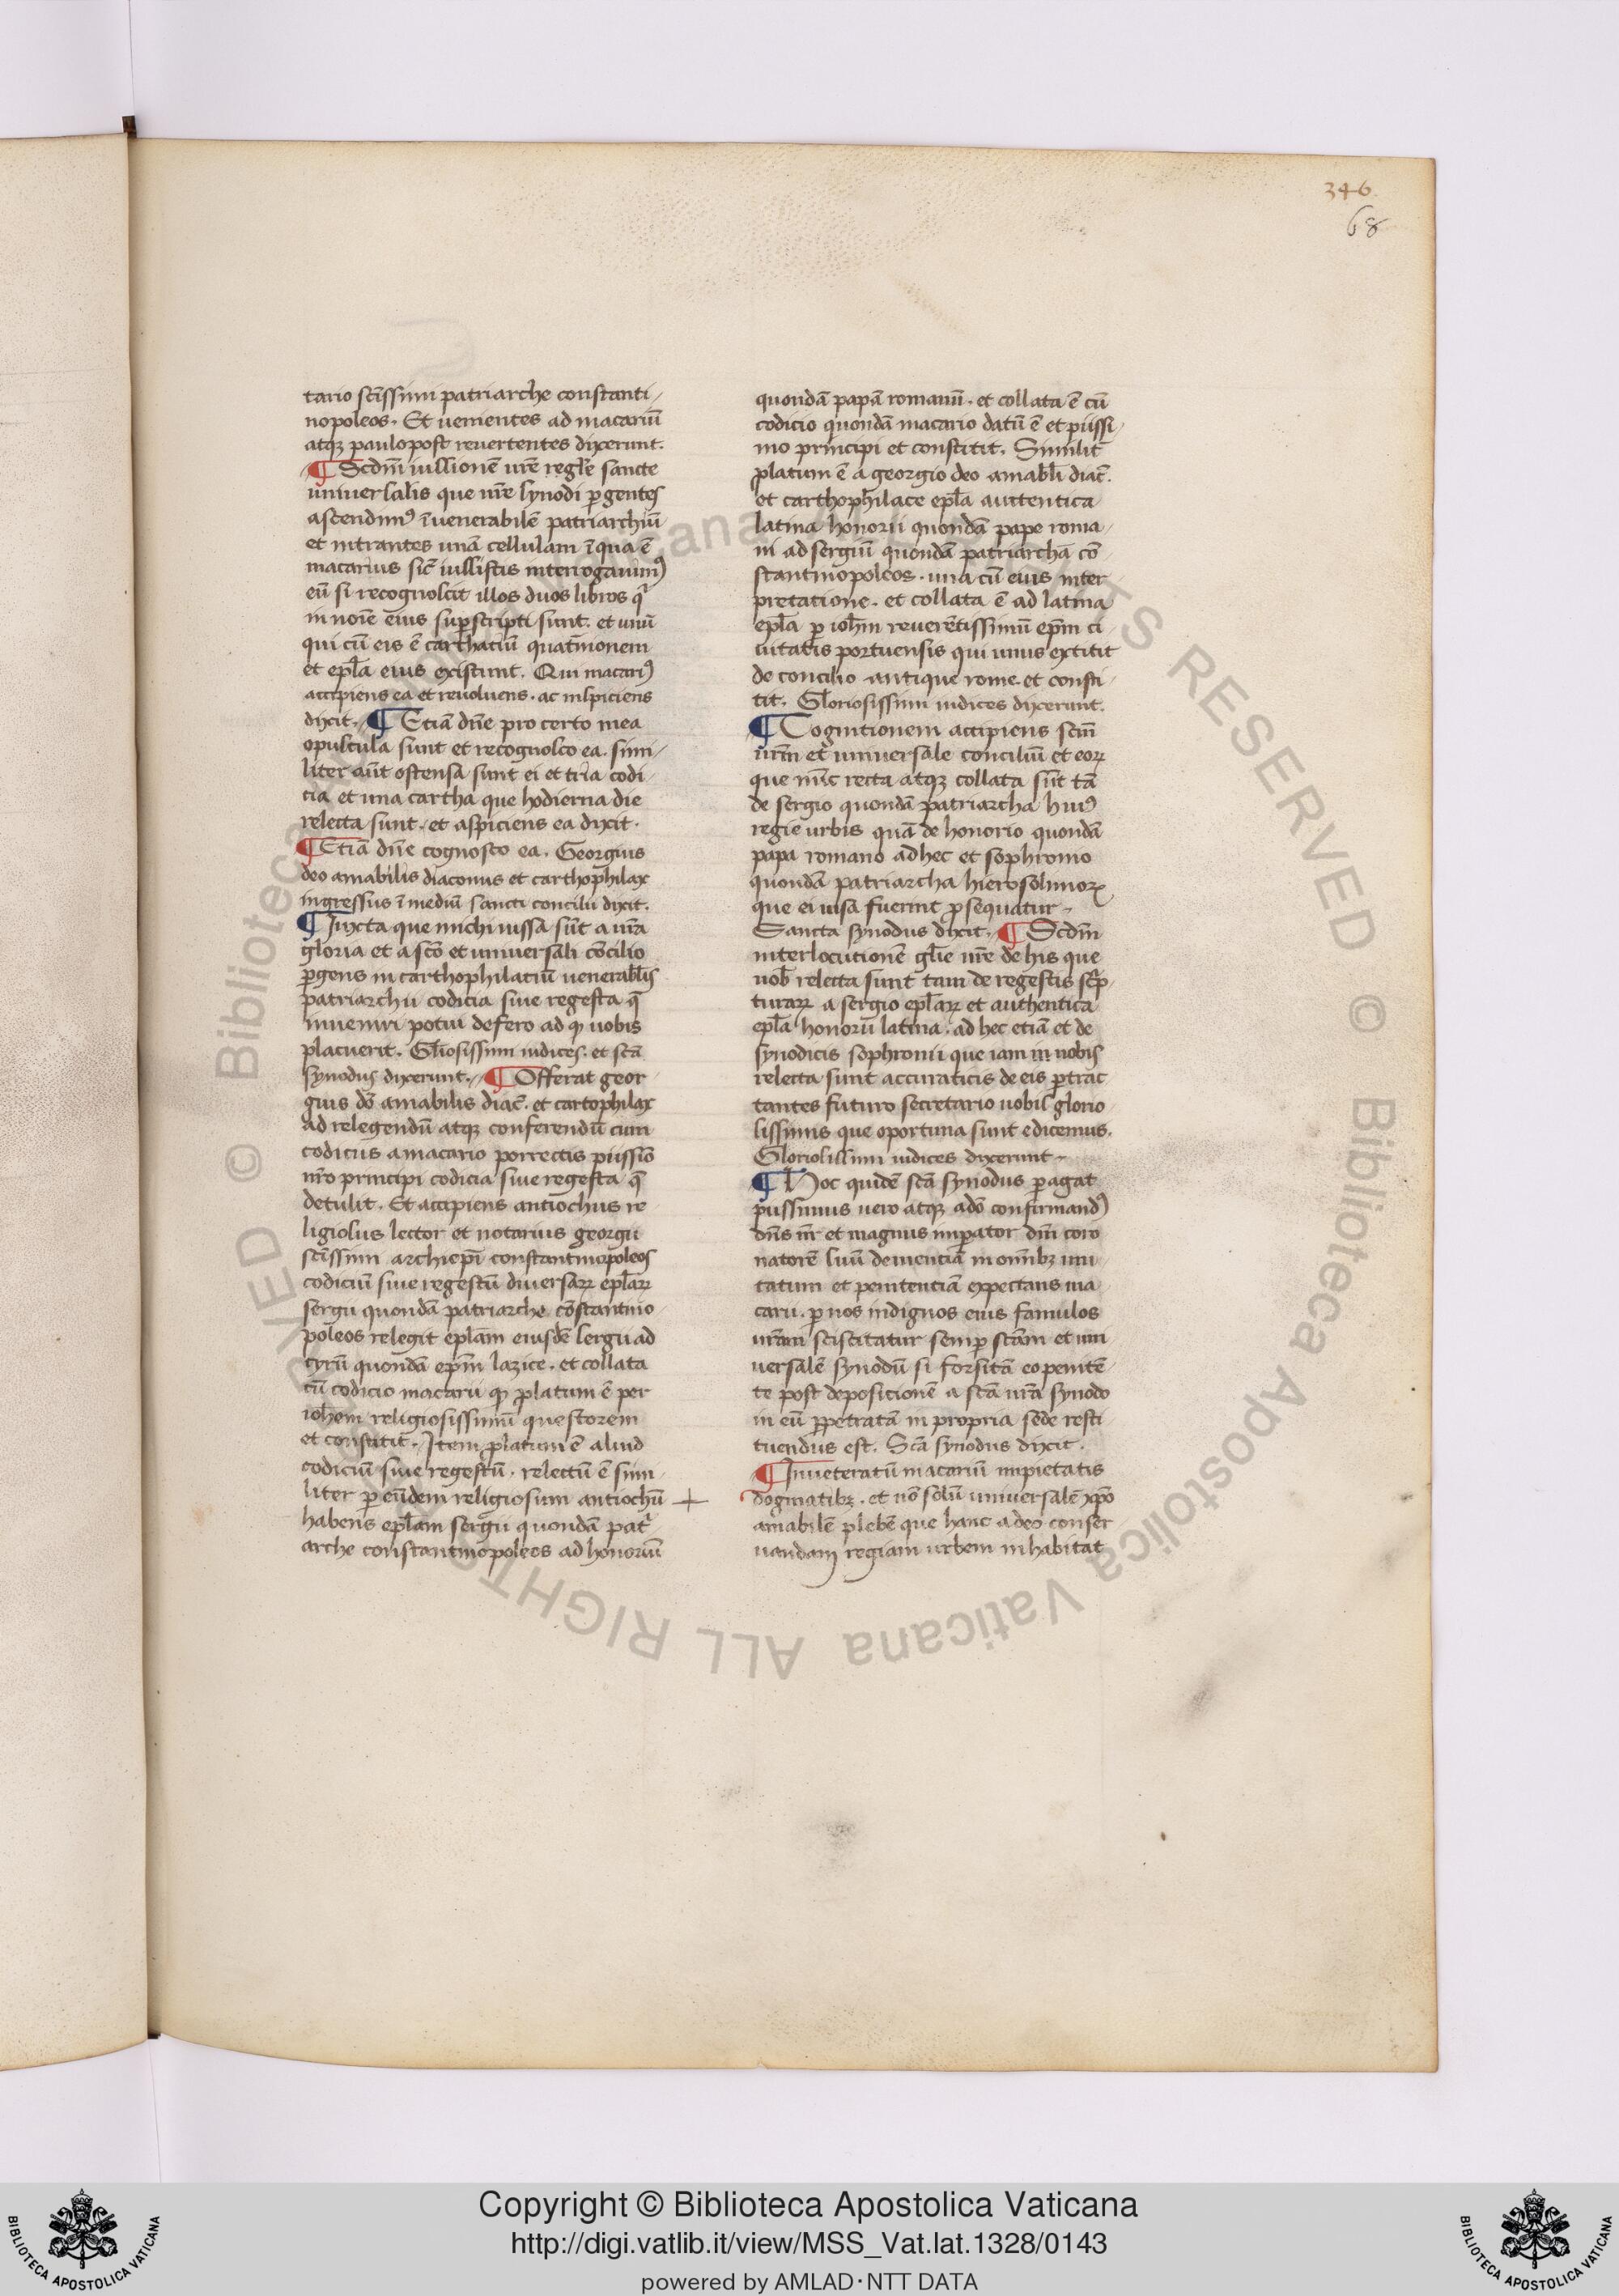 346
68
tario scissimi patriarche constanti
nopoleos. Et uenientes ad macariū
atqꝫ paulopost reuertentes dixerunt.
¶ Scdm̄ iussionē ur̄e regl̄e sancte
uniuersalis que nr̄e synodi ꝑgentes
ascendimꝰ ī uenerabilē patriarchiū
et intrantes unā cellulam ī qua ē
macarius sic̄ iussistis interrogauimꝰ
eū si recognoscit illos duos libros q̄
in noīe eius suꝑscripti sunt. et unū
qui cū eis ē carthatiū quat̄nionem
et epl̄a eius existunt. Qui macariꝰ
accipiens ea et reuoluens. ac inspiciens
dixit. ¶ Etiā dn̄e pro certo mea
opuscula sunt et recognosco ea. simi
liter aūt ostensa sunt ei et tria codi
cia et una cartha que hodierna die
relecta sunt. et aspiciens ea dixit.
¶ Etiā dn̄e cognosco ea. Georgius
deo amabilis diaconus et carthophilax
ingressus ī mediū sancti concilii dixit.
¶ Iuxta que michi iussa sūt a ur̄a
gloria et a sc̄o et uniuersali cōcilio
ꝑgens in carthophilatiū uenerabl̄is
patriarchii codicia siue regesta q̄
inueniri potui defero ad qꝫ uobis
placuerit. Gl̄iosissimi iudices. et sc̄a
synodus dixerunt. ¶ Offerat geor
gius dō amabilis diac̄. et cartophilax
ad relegendū atqꝫ conferendū cum
codicus a macario porrectis piissīo
nr̄o principi codicia siue regesta q̄
detulit. Et accipiens antiochus re
ligiosus lector et notarius georgii
scīssimi archiepī constantinopoleos
codiciū siue regestū diuersaꝝ epl̄aꝝ
sergii quondā patriarche cōstantino
poleos relegit epl̄am eiusdē sergii ad
cyrū quondā epm̄ lazice. et collata
cū codicio macarii qꝫ ꝓlatum ē per
ioh̄em religiosissimū questorem
et constitit. Item ꝓlatum ē aliud
codiciū siue regestū. relectū ē simi
liter ꝑ eūdem religiosum antiochū +
habens epl̄am sergii quondā patⁱ
arche constantinopoleos ad honoriū
quondā papā romanū. et collata ē cū
codicio quondā macario datū ē et piissi
mo principi et constitit. Similit̄
ꝓlatum ē a georgio deo amabl̄i diac̄.
et carthophilace epl̄a auttentica
latina honorii quondā pape roma
ni ad sergiū quondā patriarchā cō
stantinopoleos. una cū eius inter
pretatione. et collata ē ad latina
epl̄a ꝑ ioh̄m reuerētissimū epm̄ ci
uitatis portuensis qui unus extitit
de concilio antique rome. et consti
tit. Gloriosissimi iudices dixerunt.
¶ Cognitionem accipiens scm̄
ur̄m et uniuersale conciliū et eoꝝ
que nūc recta atqꝫ collata sūt tā
de sergio quondā patriarcha huiꝰ
regie urbis quā de honorio quondā
papa romano adhec et sophronio
quondā patriarcha hierosolimoꝝ
que ei uisa fuerint ꝓsequatur
Sancta synodus dixit. ¶ Scdm̄
interlocutionē gl̄ie ur̄e de his que
nob̄ relecta sunt tam de regestis scrip
turaꝝ a sergio epl̄aꝝ et authentica
epl̄a honorii latina. ad hec etiā et de
synodicis sophronii que iam in nobis
relecta sunt accuraticis de eis ꝑtrac
tantes futuro secretario uobis glorio
sissimis que oportuna sunt edicemus.
Gloriosissimi iudices dixerunt
¶ Hoc quidē sc̄a synodus ꝑagat
piissimus uero atqꝫ adō confirmandꝰ
dn̄s nr̄ et magnus imꝑator dm̄ coro
natorē suū clementiā in om̄ibꝫ imi
tatum et penitentiā expectans ma
carii. ꝑ nos indignos eius famulos
ur̄am sciscitatur semꝑ sc̄am et uni
uersalē synodū si forsitā eo penitē
te post depositionē a sc̄a ur̄a synodo
in eū ꝑpetratā in propria sede resti
tuendus est. Sc̄a synodus dixit.
¶ Inueteratū macariū impietatis
dogmatibꝫ. et nō solū uniuersalē xp̄o
amabilē plebē que hanc a deo conser
uandam regiam urbem inhabitat
Copyright © Biblioteca Apostolica Vaticana
http://digi.vatlib.it/view/MSS_Vat.lat.1328/0143
powered by AMLAD·NTT DATA
BIBLIOTECA APOSTOLICA VATICANA
BIBLIOTECA APOSTOLICA VATICANA
© Biblioteca Apostolica Vaticana ALL RIGHTS RESERVED